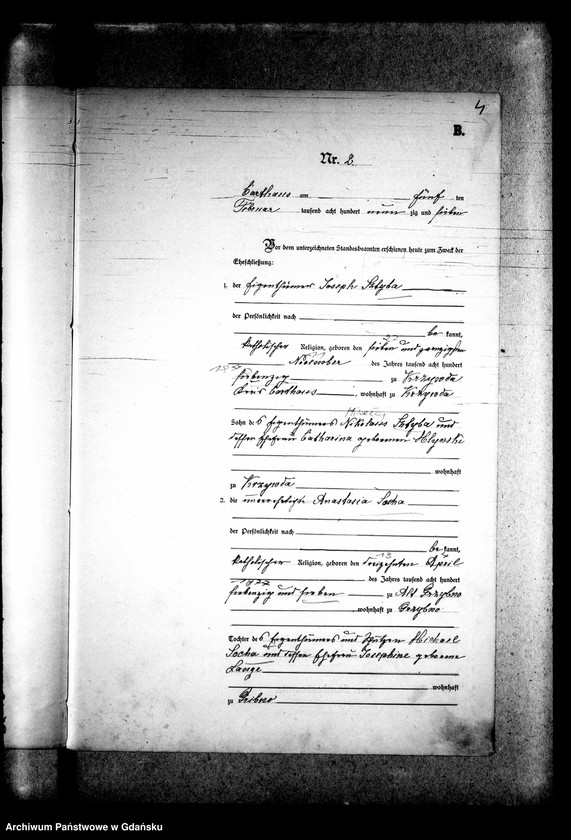 4
B.
Nr. 2.
Carthaus am fünf ten
Februar tausend acht hundert neun zig und sieben
Vor dem unterzeichneten Standesbeamten erschienen heute zum Zweck der
Eheschließung:
1. der Eigenthümer Joseph Sztyba
der Persönlichkeit nach
be kannt,
katholischer Religion, geboren den sieben und zwanzigsten
November des Jahres tausend acht hundert
siebenzig zu Krzywoda
Kreis Carthaus, wohnhaft zu Krzywoda
Sohn des Eigenthümers Nikolaus Sztyba und
dessen Ehefrau Catharina geborenen Hlynski
wohnhaft
zu Krzywoda
2. die unverehelichte Anastasia Socha
der Persönlichkeit nach
be kannt,
katholischer Religion, geboren den dreizehnten April
13
1877 des Jahres tausend acht hundert
siebenzig und sieben zu Alt Grzybno
wohnhaft zu Grzybno
Tochter des Eigenthümers und Michael
Socha und dessen Ehefrau Josephine geborene
Lange
wohnhaft
zu Gribno
Archiwum Państwowe w Gdańsku